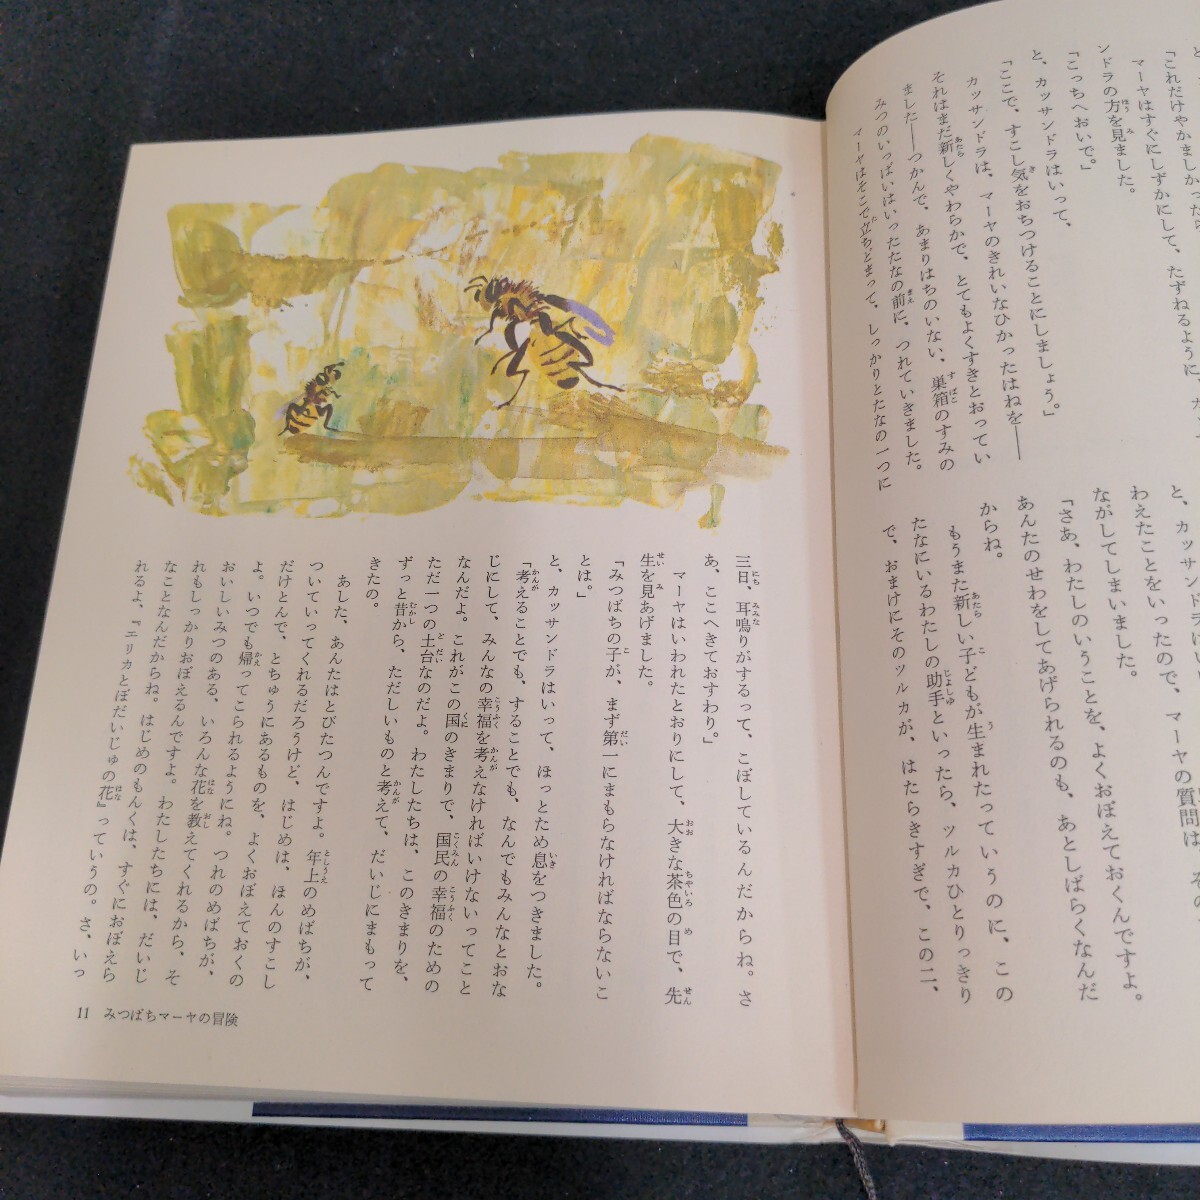 と、
「これだけやかましかったら
マーヤはすぐにしずかにして、たずねるように、カ
ンドラの方を見ました。
「こっちへおいで。」
と、カッサンドラはいって、
「ここで、すこし気をおちつけることにしましょう。」
カッサンドラは、マーヤのきれいなひかったはねを――
それはまだ新しくやわらかで、とてもよくすきとおってい
ました――つかんで、あまりはちのいない、巣箱のすみの
みつのいっぱいはいったたなの前に、つれていきました。
マーヤはそこで立ちどまって、しっかりとたなの一つに
と、カッサンドラはい
わえたことをいったので、マーヤの質問は、その
ながしてしまいました。
「さあ、わたしのいうことを、よくおぼえておくんですよ。
あんたのせわをしてあげられるのも、あとしばらくなんだ
からね。
もうまた新しい子どもが生まれたっていうのに、この
たなにいるわたしの助手といったら、ツルカひとりっきり
で、おまけにそのツルカが、はたらきすぎで、この二、
三日、耳鳴りがするって、こぼしているんだからね。さ
あ、ここへきておすわり。」
マーヤはいわれたとおりにして、大きな茶色の目で、先
生を見あげました。
「みつばちの子が、まず第一にまもらなければならないこ
とは。」
と、カッサンドラはいって、ほっとため息をつきました。
「考えることでも、することでも、なんでもみんなとおな
じにして、みんなの幸福を考えなければいけないってこと
なんだよ。これがこの国のきまりで、国民の幸福のための
ただ一つの土台なのだよ。わたしたちは、このきまりを、
ずっと昔から、ただしいものと考えて、だいじにまもって
きたの。
あした、あんたはとびたつんですよ。年上のめばちが、
ついていってくれるだろうけど、はじめは、ほんのすこし
だけとんで、とちゅうにあるものを、よくおぼえておくの
よ。いつでも帰ってこられるようにね。つれのめばちが、
おいしいみつのある、いろんな花を教えてくれるから、そ
れもしっかりおぼえるんですよ。わたしたちには、だいじ
なことなんだからね。はじめのもんくは、すぐにおぼえら
れるよ、『エリカとぼだいじゅの花』っていうの。さ、いっ
11 みつばちマーヤの冒険